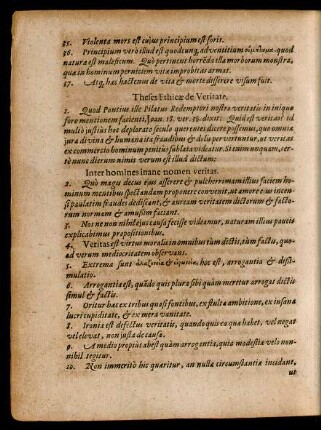 35. Violenta mors est cujus principium est foris.
36. Principium verò illud est quodvung, adventitium quod
natura est maleficum. Quò pertinent horrēda illa morborum monstra,
qua in hominum perniciem vita improbitas armat.
37. Atq, hac hactenus de vita & morte disserere visum fuit.
Theses Ethicæ de Veritate.
1. Quod Pontius ille Pilatus Redemptori nostro veritatis in iniquo
fore mentionem facienti, Joan. 18. ver. 38. dixit: Quid est veritas? id
multò justius hoc deplorato seculo quærentes dicere possemus, quo omnia
jura divina & humana ita fraudibus & dolis pervertuntur, ut veritas
ex commercio hominum penitus sublata videatur. Et enim nunquam, cer-
tè nunc dierum nimis verum est illud dictum;
Inter homines inane nomen veritas.
2. Quò magis decus ejus asserere & pulcherrimam illius faciem ho-
minum mentibus spectandam proponere convenit, ut amore ejus incen-
si paulatim fraudes dediscant, & auream veritatem dictorum & facto-
rum normam & amussim faciant.
3. Nos ne non nihil ejus causa fecisse videamur, naturam illius paucis
explicabimus propositionibus.
4. Veritas est virtus moralis in omnibus tùm dictis, tùm factis, quo-
ad verum mediocritatem observans.
5. Extrema sunt ἀλαζονεία & εἰρωνεία, hoc est, arrogantia & dissi-
mulatio.
6. Arrogantia est, quādo quis plura sibi quàm meretur arrogat dictis
simul & factis.
7. Oritur hæc ex tribus quasi fontibus, ex stulta ambitione, ex insana
lucri cupiditate, & ex mera vanitate.
8. Ironia est defectus veritatis, quando quis ea qua habet, vel negat
vel elevat, non justa de causa.
9. A medio propius abest quàm arrogantia, quia modestia velo non-
nihil tegitur.
10. Non immeritò hic quæritur, an nulla circumstantiæ incidant,
ut